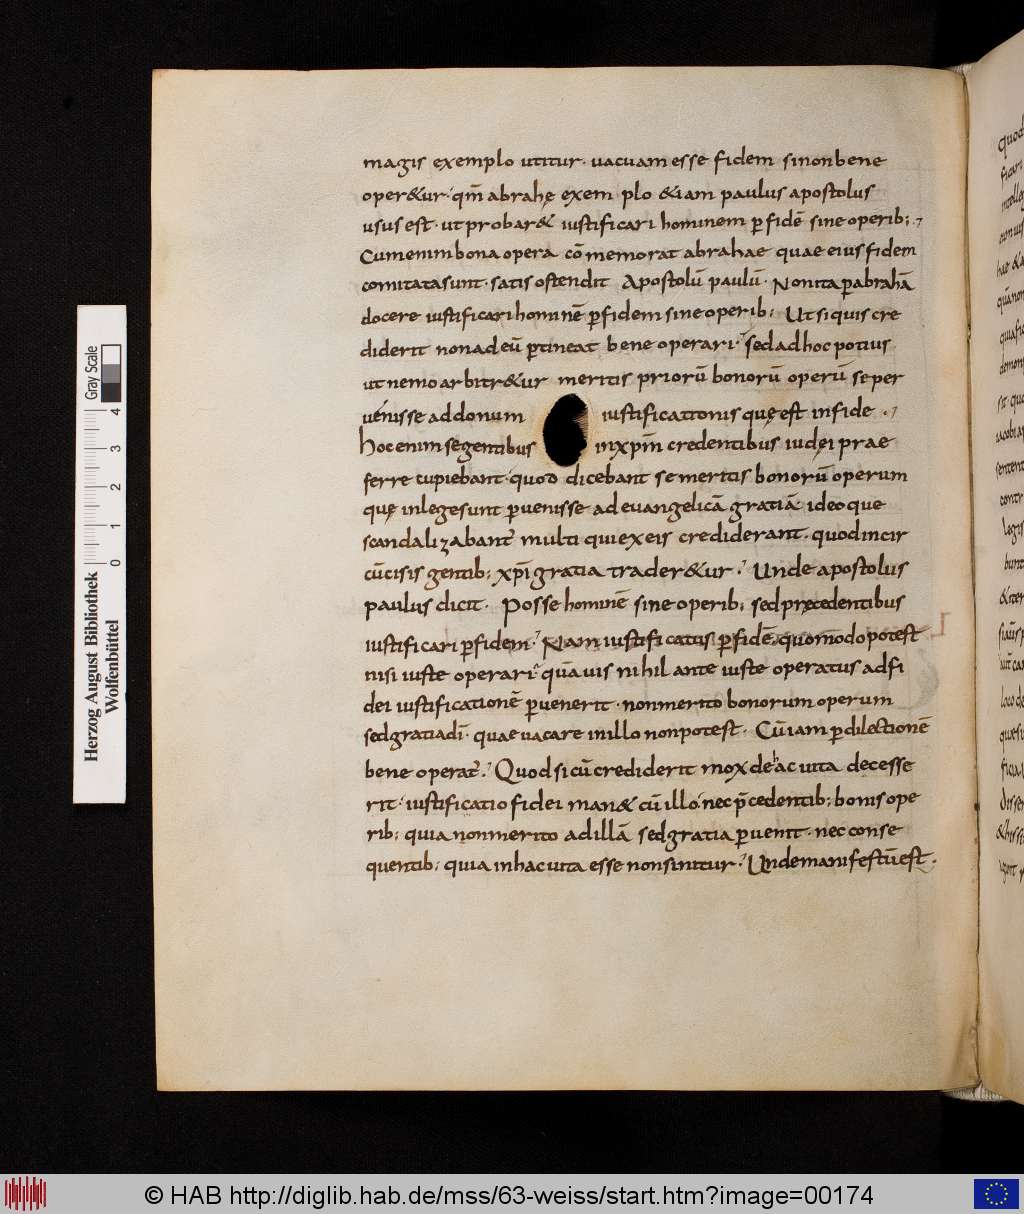 magis exemplo utitur· uacuam esse fidem si non bene
oper&ur· qm̄ abrahę exem plo &iam paulus apostolus
usus est· ut probar& iustificari hominem p̱ fidē sine operib;·
Cum enim bona opera cō memorat abrahae quae eius fidem
comitata sunt· satis ostendit Apostolū paulū· Non ita p̱ abrahā
docere iustificari hominē p̱ fidem sine operib; Ut si quis cre
diderit non ad eū p̱tineat bene operari· sed ad hoc potius
ut nemo arbitr&ur meritis priorū bonorū operū se per
uenisse ad donum iustificationis quę est in fide ·
hoc enim se gentibus in xpm̄ credentibus iudei prae
ferre cupiebant· quod dicebant se meritis bonorū operum
quę in lege sunt p̱uenisse ad euangelicā gratiā ideo que
scandalizabant̄ multi qui ex eis crediderant· quod incir
cūcisis gentib; xp̄i gratia trader&ur· Unde apostolus
paulus dicit· Posse hominē sine operib; sed pręcedentibus
iustificari p̱ fidem· Nam iustificatus p̱ fidē, quomodo potest
nisi iuste operari· quāuis nihil ante iuste operatus ad fi
dei iustificationē p̱uenerit· non merito bonorum operum
sed gratia dī· quae uacare in illo non potest· Cū iam p̱ dilectionē
bene operat̄· Quod si cū crediderit mox de hac uita decesse
rit· iustificatio fidei man& cū illo nec p̄cedentib; bonis ope
rib; quia non merito ad illā sed gratia p̱uenit· nec conse
quentib; quia in hac uita esse non sinitur· Unde manifestū est·
Herzog August Bibliothek
Wolfenbüttel
Gray Scale
0 1 2 3 4
© HAB http://diglib.hab.de/mss/63-weiss/start.htm?image=00174